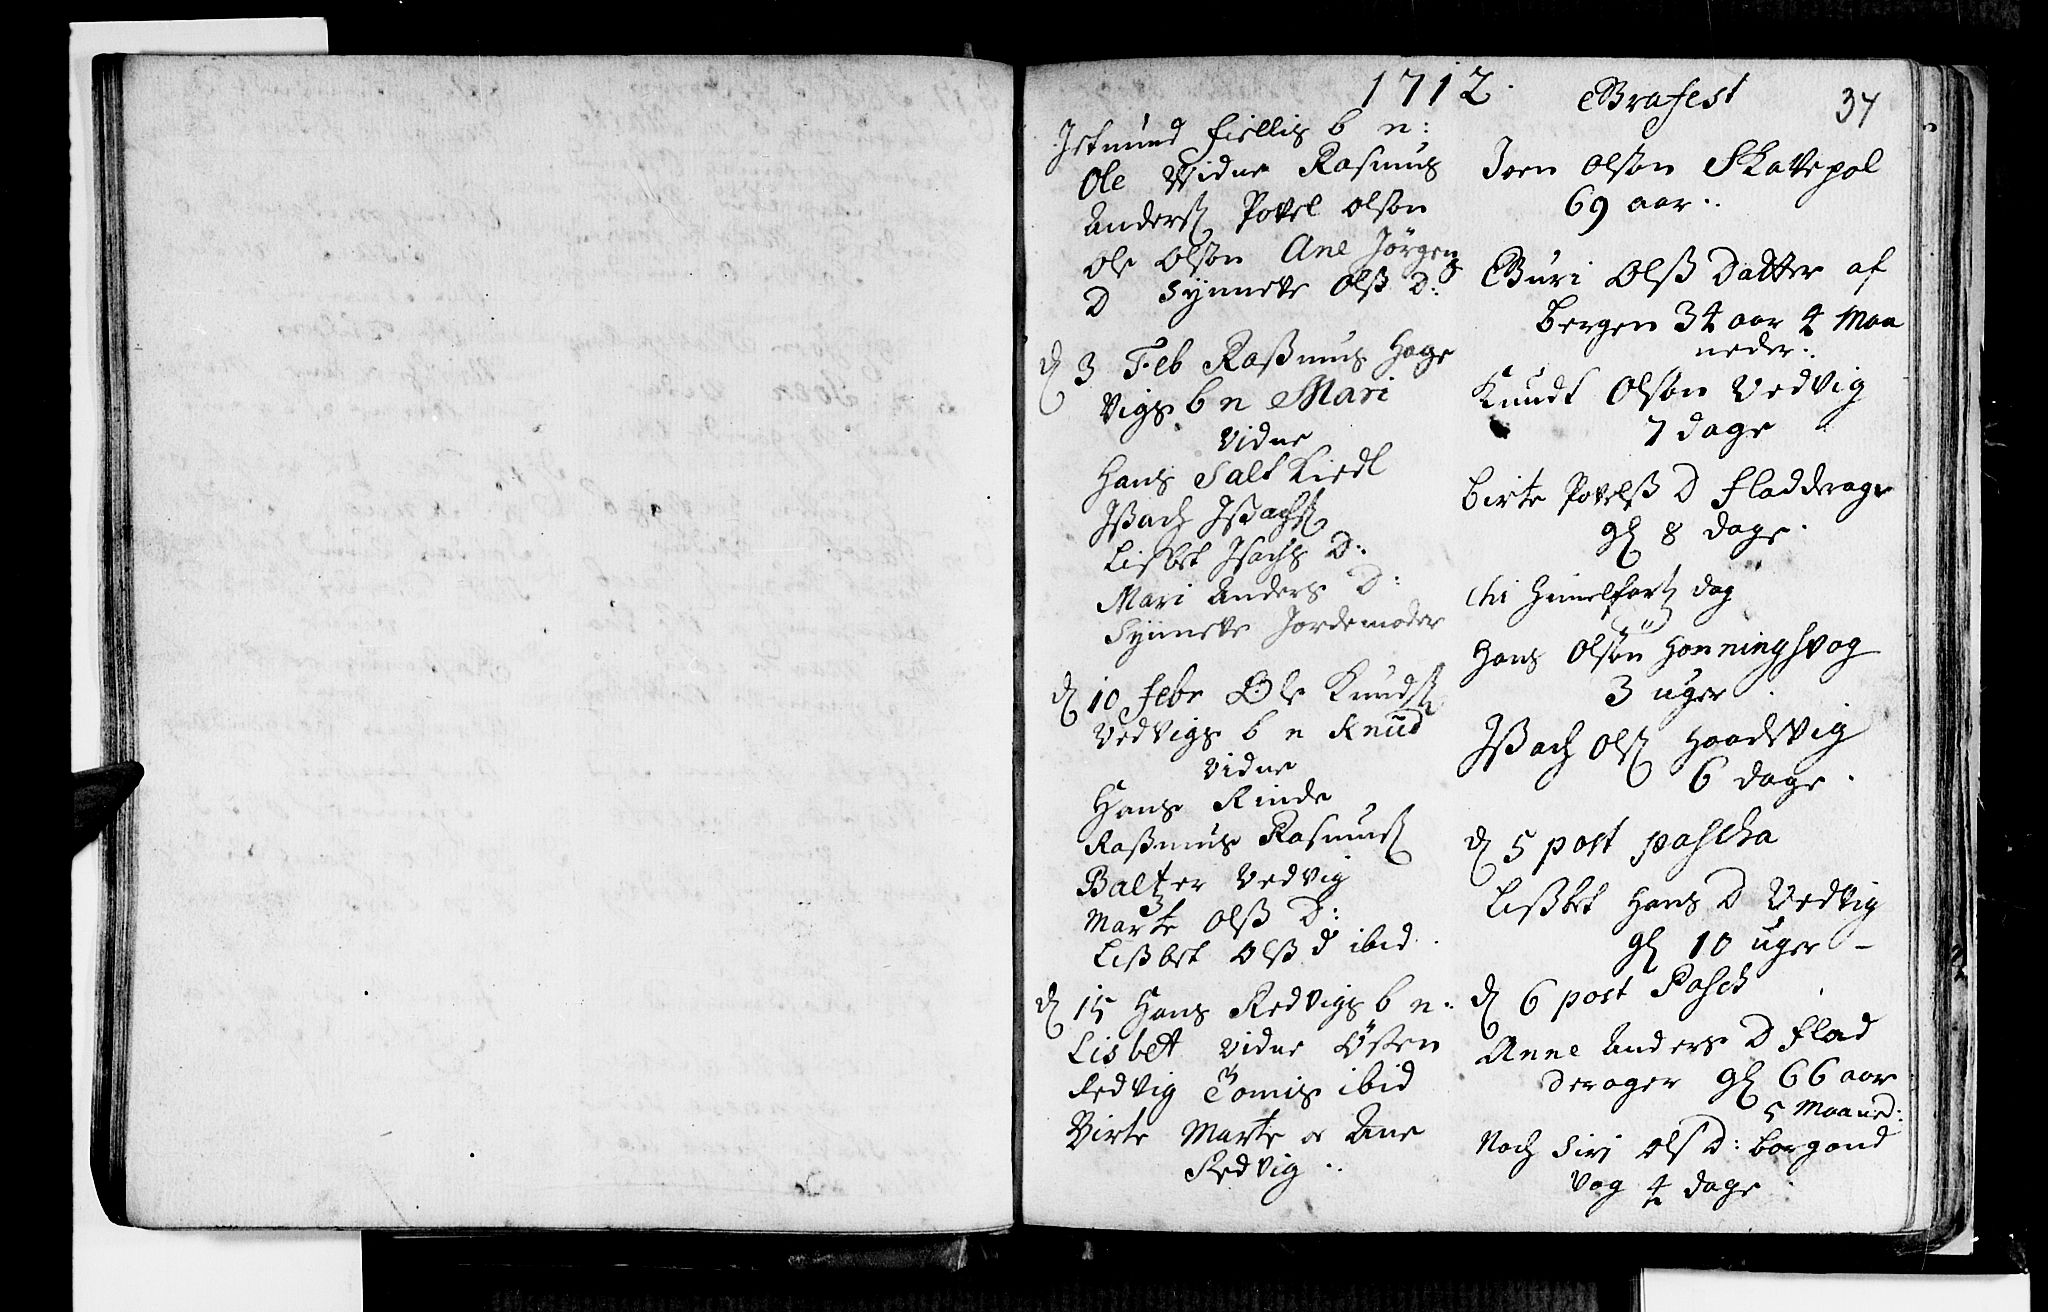 1712.
Jetmund fiellis b n:
Ole Vidne Rasmus
Anders Povel olson
ole olson Ane Jörgens
D Synneve Olß D:
d 3 Feb Raßmus Hage
vigs b n Mari
Vidne
Hans Saltkield
Jßach Jßachs
Lisbet Jsachs D:
Mari Anders D:
Synneve Jordemoder
d 10 febr Ole Knuds
Vedvigs b n Knud
vidne
Hans Rinde
Raßmus Rasmus
Baltzer Vedvig
Marte Olß D:
Lißbet olß d ibid.
d 15 Hans Redvigs b n:
Lisbet vidne östen
Redvig Tomis ibid
Birte Marte oc Ane
Redvig
Begrafest
37
Joen olson Skatepol
69 aar.
Guri Olß Datter af
bergen 34 aar 4 Maa
neder:
Knudt Olson Vedvig
7 dage
birte Povelß D Fladderage
gl 8 dage.
chi Himelfartz dag
Hans Olson Honningsvog
3 uger
Jßach Ols Haadsvig
6 dage.
d 5 post pascha
Lißbet Hans D Vedvig
gl 10 uger
d 6 post Pasch
Anne Anders D Flad
derager gl 66 aar
5 Maaned:
Noch Siri ols D: borgond
vog 4 dage